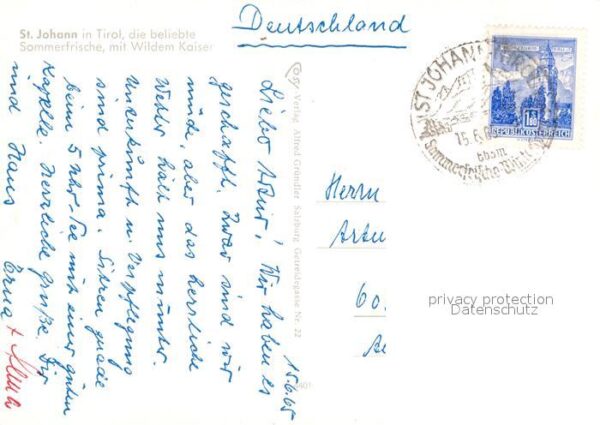 St. Johann in Tirol, die beliebte
Sommerfrische, mit Wildem Kaiser
Deutschland
15.6.65
Lieber Artur! Wir haben es
geschafft. Zwar sind wir
müde, aber das herrliche
Wetter hält uns munter.
Unterkunft u. Verpflegung
sind prima. Sitzen grade
beim 5 Uhr-Tee mit einer guten
Kapelle. Herzliche Grüße. Dir
Erna + 
und Hans
Verlag Alfred Gründler Salzburg Getreidegasse Nr. 22
ST. JOHANN
15.6.65
Sommerfrische
1.80
REPUBLIK ÖSTERREICH
Herrn
Artu
60.
privacy protection
Datenschutz